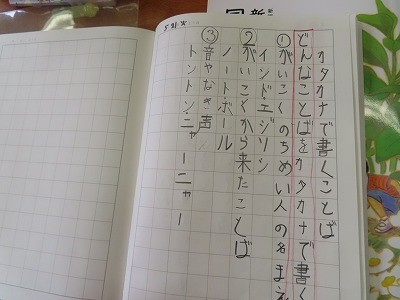 カタカナで書くことば
どんなことばをカタカナで書く
①がいこくのちめい人の名まえ
インド エジソン
②がいこくから来たことば
ノート ボール
③音やなき声
トントン ニャーニャー